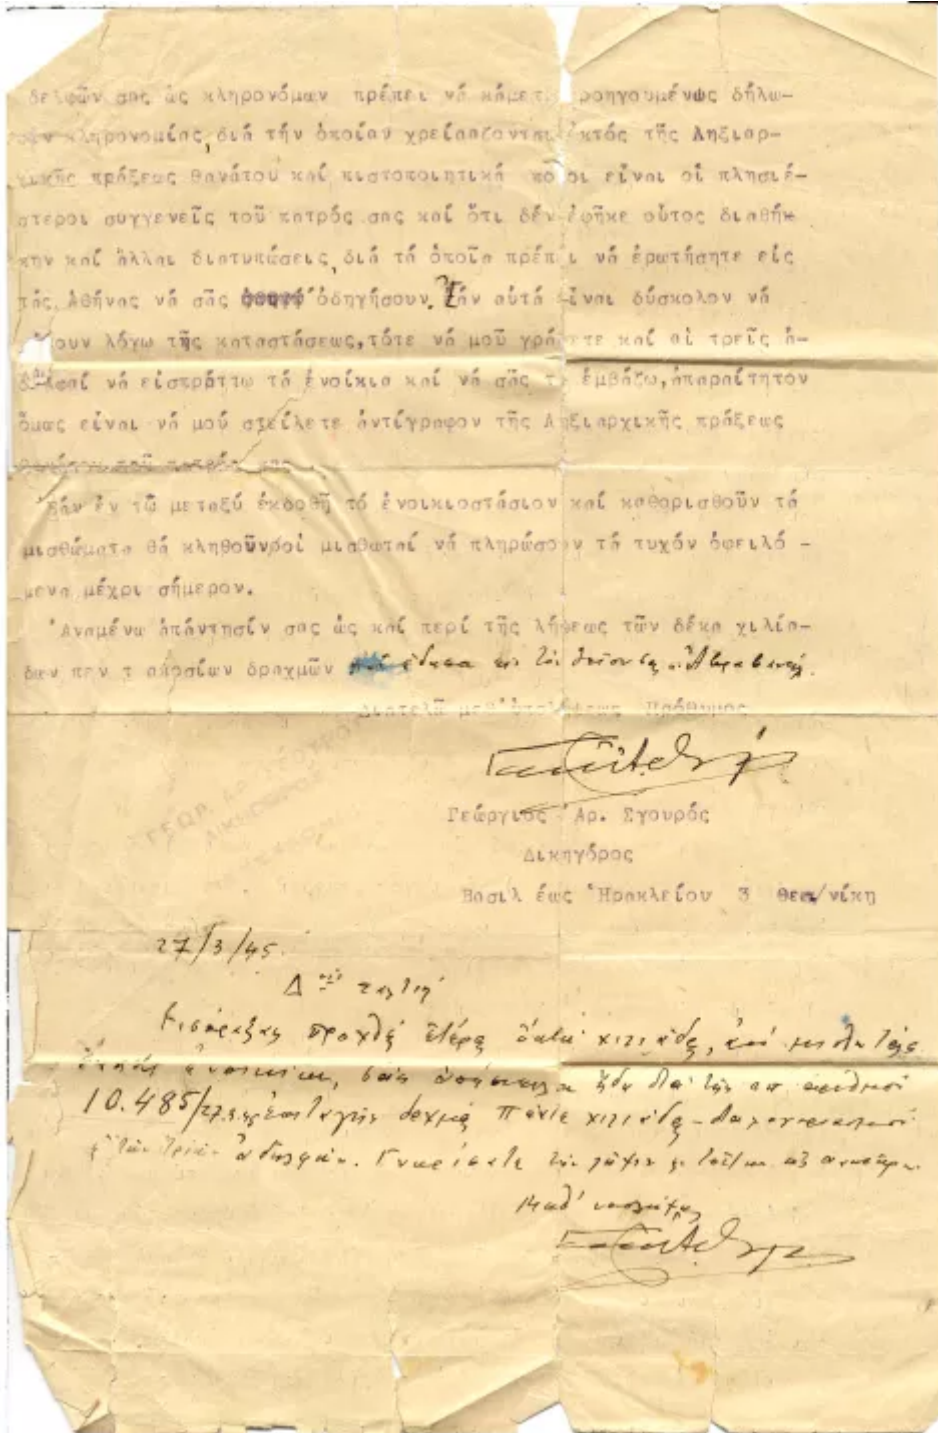 δελφῶν σας ὡς κληρονόμων πρέπει νά κάμετ. ροηγουμένως δήλω-
σιν κληρονομίας, διά τήν ὁποίαν χρειάζονται ἐκτός τῆς Ληξιαρ-
χικῆς πράξεως θανάτου καί πιστοποιητικά ποῖοι εἶναι οἱ πλησιέ-
στεροι συγγενεῖς τοῦ πατρός σας καί ὅτι δέν ἀφῆκε οὗτος διαθήκ
κην καί ἄλλαι διατυπώσεις, διά τά ὁποῖα πρέπει νά ἐρωτήσητε εἰς
τάς Ἀθήνας νά σᾶς ὁδηγήσουν. Ἐάν αὐτά εἶναι δύσκολον νά
γίνουν λόγω τῆς καταστάσεως, τότε νά μοῦ γράψετε καί αἱ τρεῖς ἀ-
δελφαί νά εἰσπράττω τά ἐνοίκια καί νά σᾶς τά ἐμβάζω, ἀπαραίτητον
ὅμως εἶναι νά μού στείλετε ἀντίγραφον τῆς Ληξιαρχικῆς πράξεως
θανάτου τοῦ πατρός σας
Ἐάν ἐν τῶ μεταξύ ἐκδοθῆ τό ἐνοικιοστάσιον καί καθορισθοῦν τά
μισθώματα θά κληθοῦν οἱ μισθωταί νά πληρώσουν τά τυχόν ὀφειλό-
μενα μέχρι σήμερον.
Ἀναμένω ἀπάντησίν σας ὡς καί περί τῆς λήψεως τῶν δέκα χιλιά-
δων πεντ ακοσίων δραχμῶν ἔδωσα
Διατελῶ μεθ' ὑπολήψεως Πρόθυμος
Γεώργιος Ἀρ. Σγουρός
Δικηγόρος
Βασιλ έως Ἡρακλείου 3 Θεσ/νίκη
27/3/45.
Εἰσέπραξα προχθές ἑτέρας ὀκτώ χιλιάδας,
ἤδη διά τῆς ὑπ' ἀριθμόν
10.485/27. ἐπιταγῆς δρχμάς πέντε χιλιάδας
τῶν τριῶν ἀδελφῶν. Γνωρίσατε τήν λῆψιν
Μεθ' ὑπολήψεως